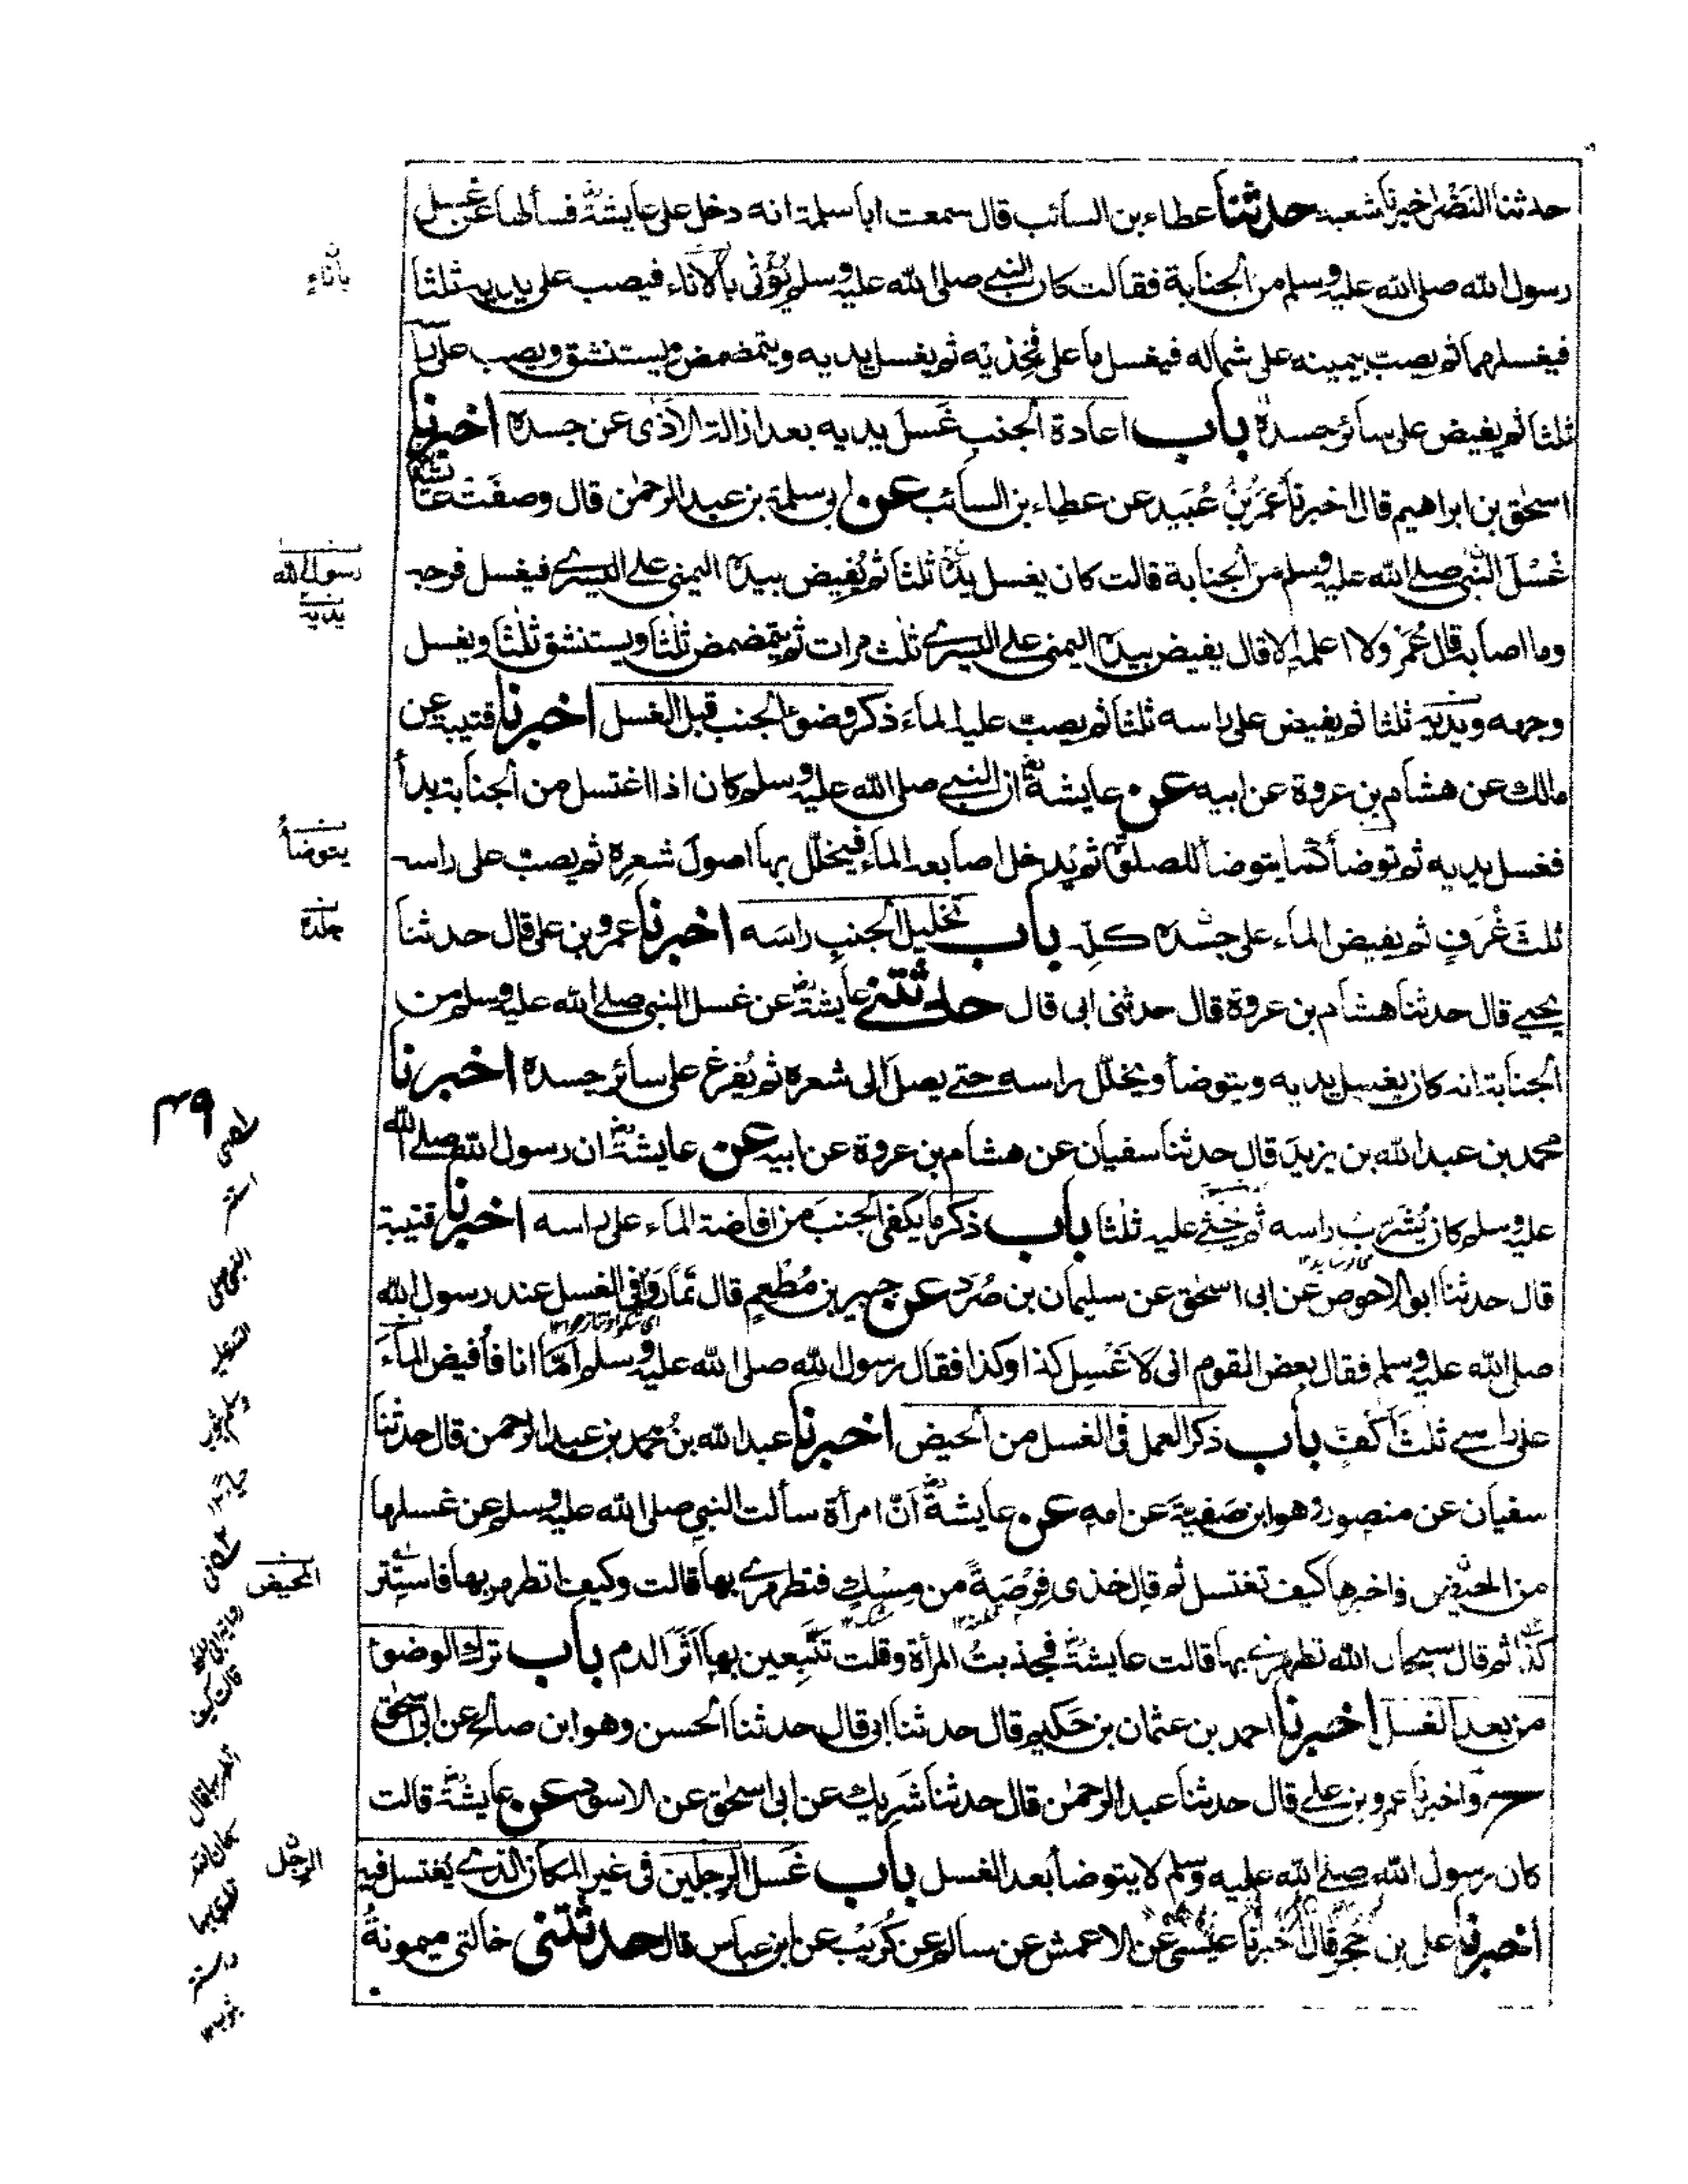 حدثنا النضر اخبرنا شعبة حدثنا عطاء بن السائب قال سمعت ابا سلمة انه دخل على عايشة فسألها عن غسل
رسول الله صلى الله عليه وسلم من الجنابة فقالت كان النبي صلى الله عليه وسلم يُؤتى بالاناء فيصب على يديه ثلثا
بأناء
فيغسلهما ثم يصب بيمينه على شماله فيغسل ما على فخذيه ثم يغسل يديه ويتمضمض ويستنشق ويصب على راسه
ثلثا ثم يفيض على سائر جسده باب اعادة الجنب غَسلَ يديه بعد ازالة الاذى عن جسده اخبرنا
اسحٰق بن ابراهيم قال اخبرنا عُمَرُ بنُ عُبَيد عن عطاء بن السائب عن ابي سلمة بن عبد الرحمٰن قال وصفَتْ عائشة
غُسْلَ النبي صلى الله عليه وسلم من الجنابة قالت كان يغسل يده ثلثا ثم يُفيض بيده اليمنى على اليسرى فيغسل فرجه
رسول الله
يديه
وما اصابه قال عُمَرُ ولا اعلمه الا قال يفيض بيده اليمنى على اليسرى ثلٰث مرات ثم يتمضمض ثلٰثا ويستنشق ثلٰثا ويغسل
وجهه ويديه ثلثا ثم يفيض على راسه ثلثا ثم يصبّ عليه الماءَ ذكر وضوء الجنب قبل الغسل اخبرنا قتيبة عن
مالك عن هشام بن عروة عن ابيه عن عايشة ان النبي صلى الله عليه وسلم كان اذا اغتسل من الجنابة بدأ
فغسل يديه ثم توضأ كما يتوضأ للصلوة ثم يُدخل اصابعه الماء فيخلّل بها اصولَ شعره ثم يصبّ على راسه
يتوضأ
ثلٰثَ غُرَفٍ ثم يفيض الماء على جسده كلِّه باب تخليل الجنبِ راسَه اخبرنا عمرو بن على قال حدثنا
جلده
يحيى قال حدثنا هشام بن عروة قال حدثنى ابى قال حدثتنى عايشة عن غسل النبى صلى الله عليه وسلم من
الجنابة انه كان يغسل يديه ويتوضأ ويخلّل راسه حتى يصل الى شعره ثم يُفرغ على سائر جسده اخبرنا
محمد بن عبد الله بن يزيد قال حدثنا سفيان عن هشام بن عروة عن ابيه عن عايشة ان رسول الله صلى الله
عليه وسلم كان يُشَرِّبُ راسه ثم يَحثى عليه ثلثا باب ذكر ما يكفى الجنبَ من افاضة الماء على راسه اخبرنا قتيبة
قال حدثنا ابو الاحوص عن ابى اسحٰق عن سليمان بن صُرَد عن جبير بن مُطْعِم قال تَمَارَوْا فى الغسل عند رسول الله
صلى الله عليه وسلم فقال بعض القوم انى لاغسِل كذا وكذا فقال رسول الله صلى الله عليه وسلم امّا انا فأُفيض الماءَ
على راسى ثلٰث اكُفٍّ باب ذكر العمل فى الغسل من الحيض اخبرنا عبد الله بنُ محمد بن عبد الرحمن قال حدثنا
سفيان عن منصور وهو ابن صَفيّةَ عن امه عن عايشة انّ امرأة سألت النبي صلى الله عليه وسلم عن غسلها
من الحيض فاخبرها كيف تغتسل ثم قال خذى فِرْصَةً من مِسْكٍ فتطهرى بها قالت وكيف اتطهر بها فاستتر
المحيض
كذا ثم قال سبحان الله تطهرى بها قالت عايشة فجذبتُ المرأة وقلت تَتَّبِعين بها اَثَرَ الدم باب ترك الوضوء
من بعد الغسل اخبرنا احمد بن عثمان بن حَكيم قال حدثنا ابى قال حدثنا الحسن وهو ابن صالح عن ابى اسحٰق
ح واخبرنا عمرو بن على قال حدثنا عبد الرحمٰن قال حدثنا شَريك عن ابى اسحٰق عن الاسود عن عايشة قالت
كان رسول الله صلى الله عليه وسلم لا يتوضأ بعد الغسل باب غَسل الرجلين فى غير المكان الذى يغتسل فيه
الرجل
اخبرنا على بن حُجر قال اخبرنا عيسى عن الاعمش عن سالم عن كُرَيْب عن ابن عباس قال حدثتنى خالتى ميمونةُ
٤٩